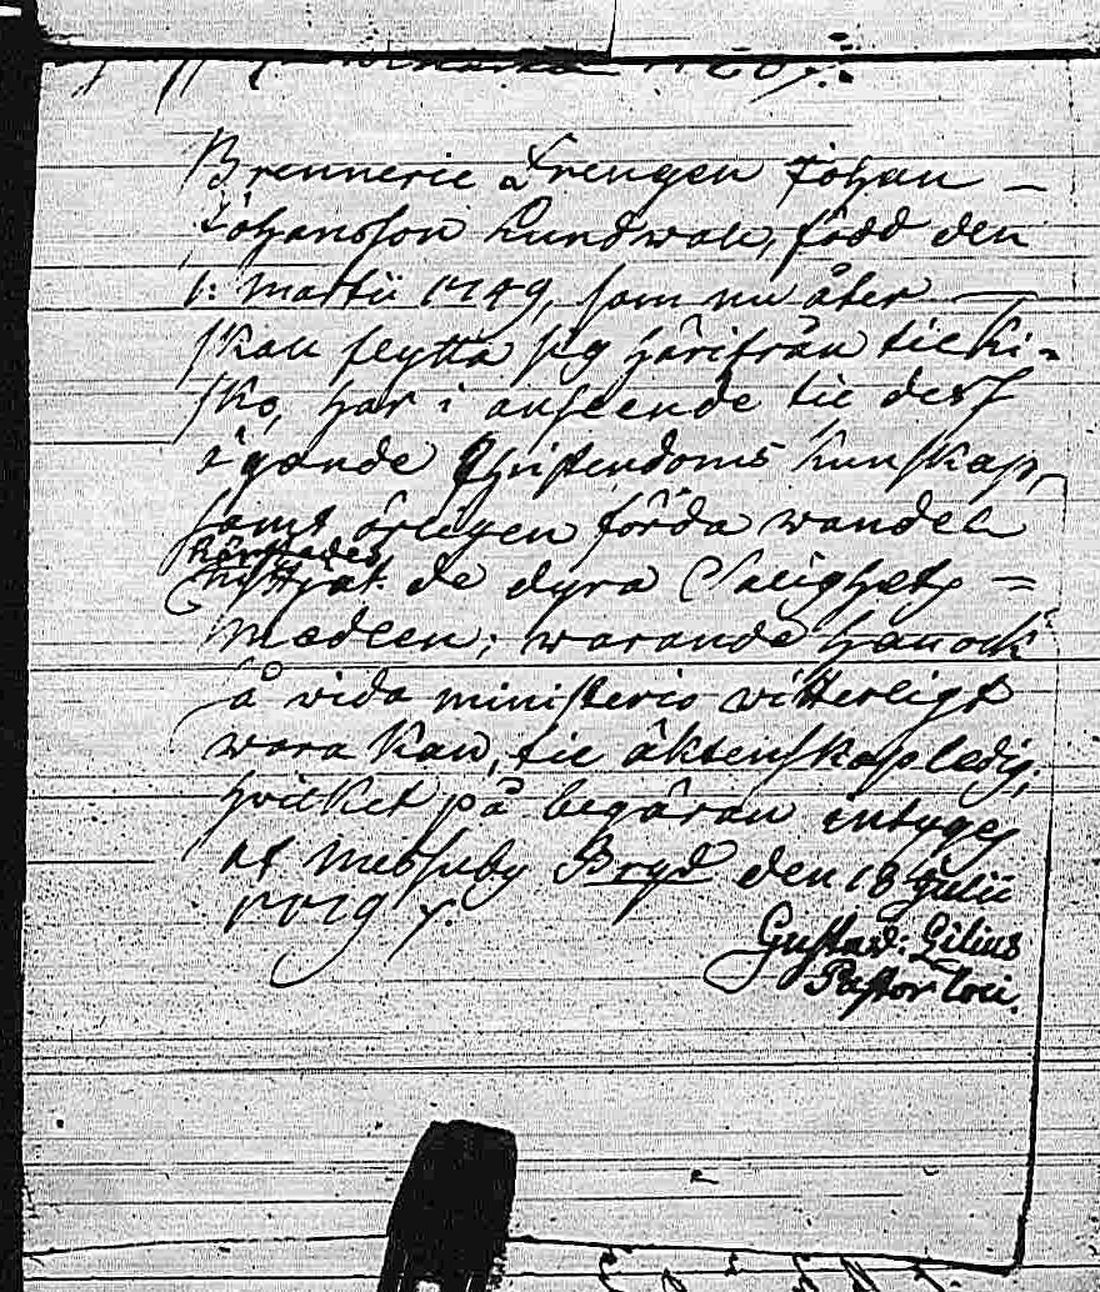 Brennerie Drengen Johan
Johansson Lundwall, född den
1: Martii 1749, som nu åter
skall flytta sig härifrån till Ki-
sko, har i anseende till dess
ägande Christendoms kunskap,
samt ärligen förda wandel
de dyra Salighets
Medlen; warande han ock
så vida ministerio witterligt
wara kan, till äktenskap ledig,
hvilket på begäran intyges
af Messuby Bryd den 18 Julii
Gustav: Gilius
Pastor loci.